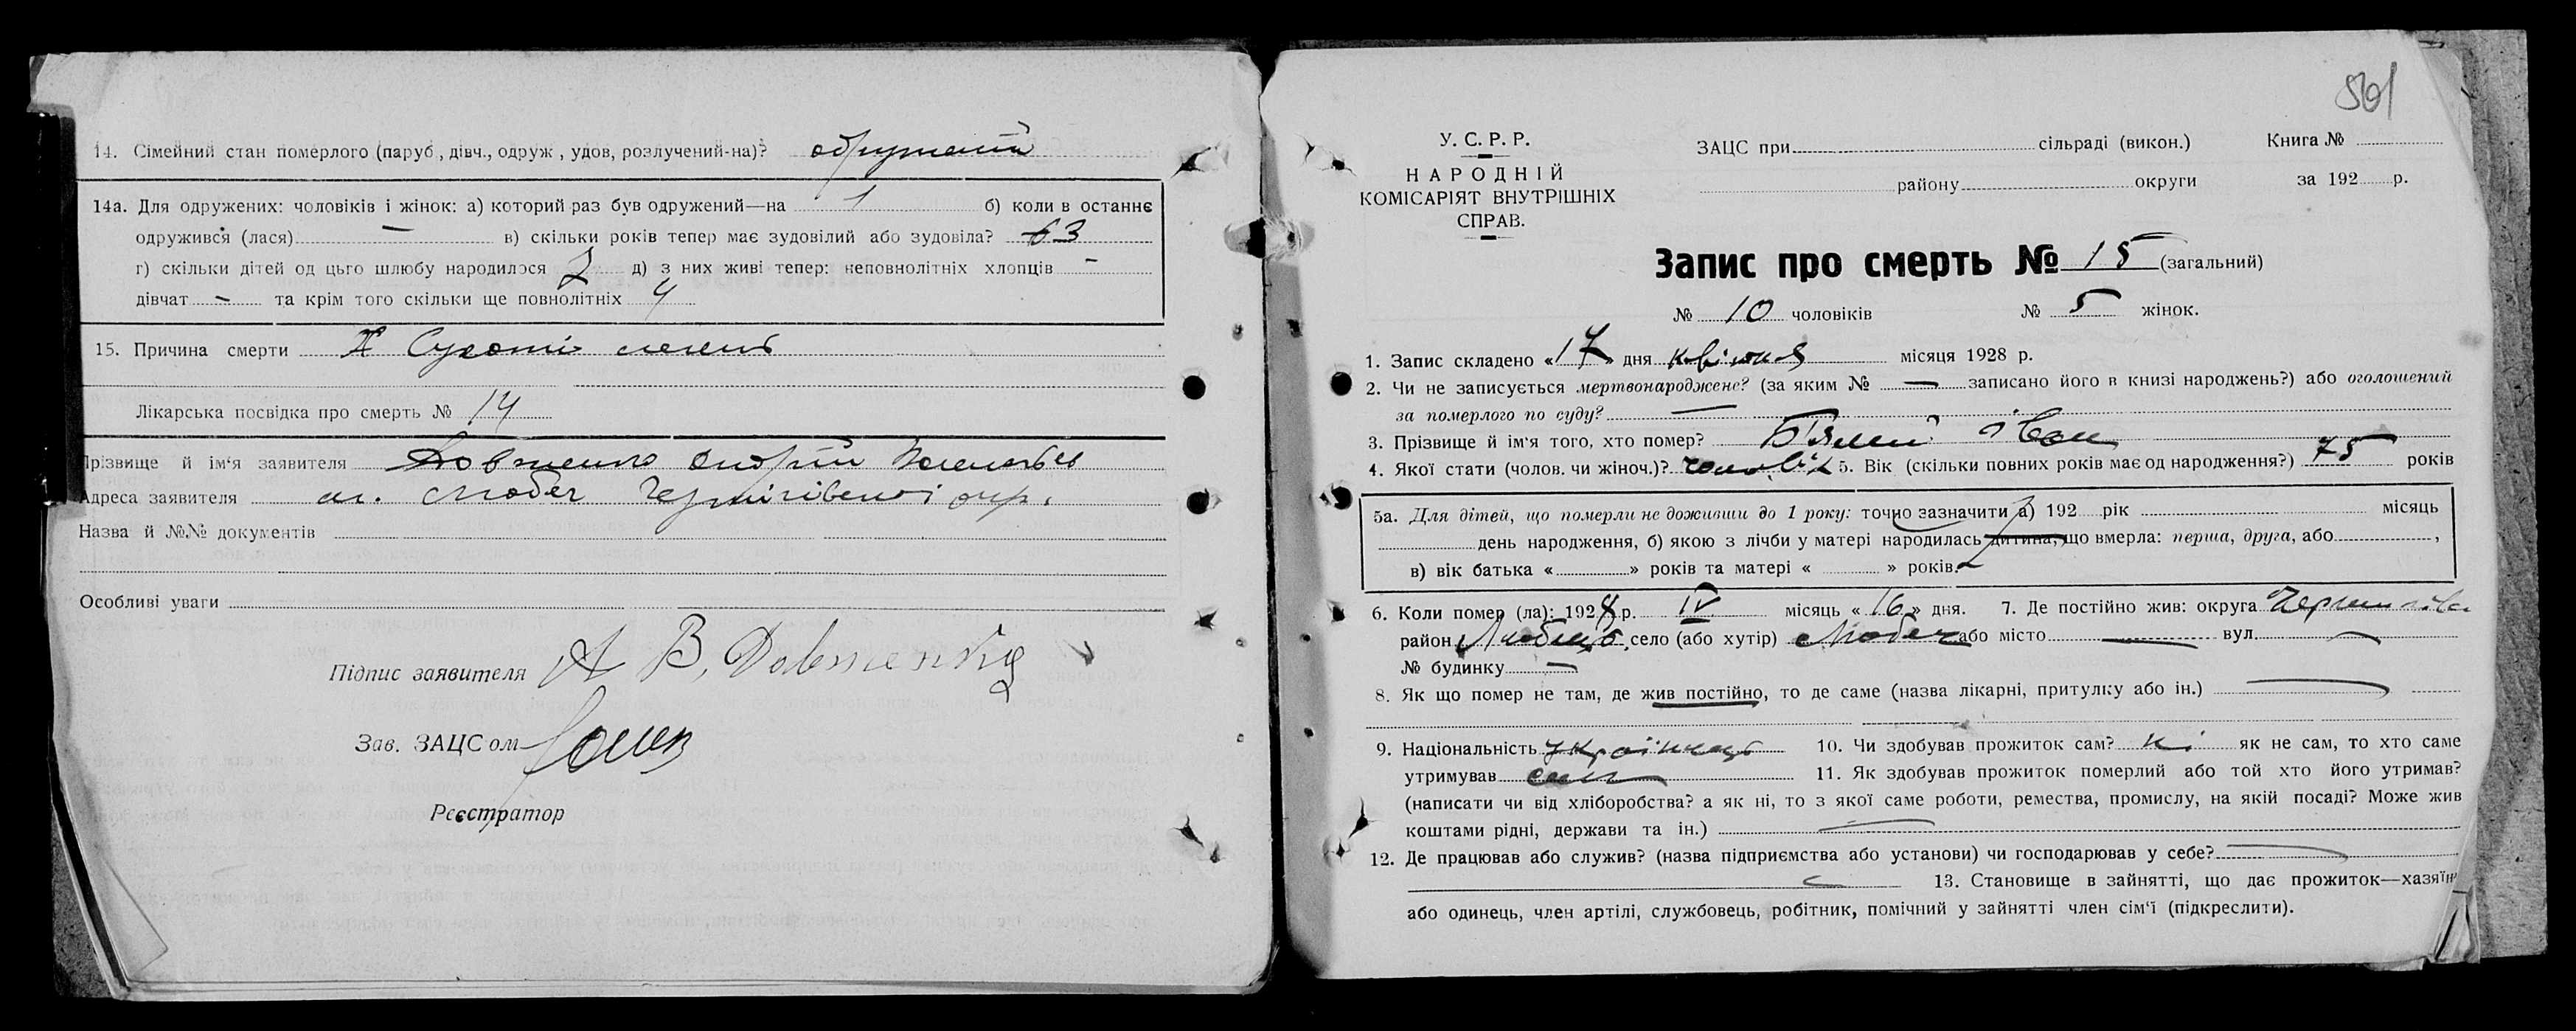 14. Сімейний стан померлого (паруб., дівч., одруж., удов, розлучений-на)? одружений
14а. Для одружених: чоловіків і жінок: а) которий раз був одружений—на 1 б) коли в останнє
одружився (лася) — в) скільки років тепер має зудовілий або зудовіла? 63
г) скільки дітей од цього шлюбу народилося 2 д) з них живі тепер: неповнолітніх хлопців -
дівчат - та крім того скільки ще повнолітніх 4
15. Причина смерти Сухоти легенів
Лікарська посвідка про смерть № 14
Прізвище й ім'я заявителя Довженко Андрій
Адреса заявителя м. Любеч Чернігівської окр.
Назва й №№ документів
Особливі уваги
Підпис заявителя А В, Довженко
Зав. ЗАЦСом
Реєстратор
501
У. С. Р. Р.
НАРОДНІЙ
КОМІСАРІЯТ ВНУТРІШНІХ
СПРАВ.
ЗАЦС при сільраді (викон.) Книга №
району округи за 192 р.
Запис про смерть № 15 (загальний)
№ 10 чоловіків № 5 жінок.
1. Запис складено «17» дня квітня місяця 1928 р.
2. Чи не записується мертвонароджене? (за яким № — записано його в книзі народжень?) або оголошений
за померлого по суду? —
3. Прізвище й ім'я того, хто помер? Іван
4. Якої стати (чолов. чи жіноч.)? чоловік 5. Вік (скільки повних років має од народження?) 75 років
5а. Для дітей, що померли не доживши до 1 року: точно зазначити а) 192 рік місяць
день народження, б) якою з лічби у матері народилась дитина, що вмерла: перша, друга, або ,
в) вік батька « » років та матері « » років.
6. Коли помер (ла): 1928 р. IV місяць «16» дня. 7. Де постійно жив: округа Чернигів.
район Любецьк. село (або хутір) Любеч або місто — вул. —
№ будинку —
8. Як що помер не там, де жив постійно, то де саме (назва лікарні, притулку або ін.) —
9. Національність українець 10. Чи здобував прожиток сам? ні як не сам, то хто саме
утримував син 11. Як здобував прожиток померлий або той хто його утримав?
(написати чи від хліборобства? а як ні, то з якої саме роботи, ремества, промислу, на якій посаді? Може жив
коштами рідні, держави та ін.) —
12. Де працював або служив? (назва підприємства або установи) чи господарював у себе? —
13. Становище в зайнятті, що дає прожиток—хазяїн
або одинець, член артілі, службовець, робітник, помічний у зайнятті член сім'ї (підкреслити).